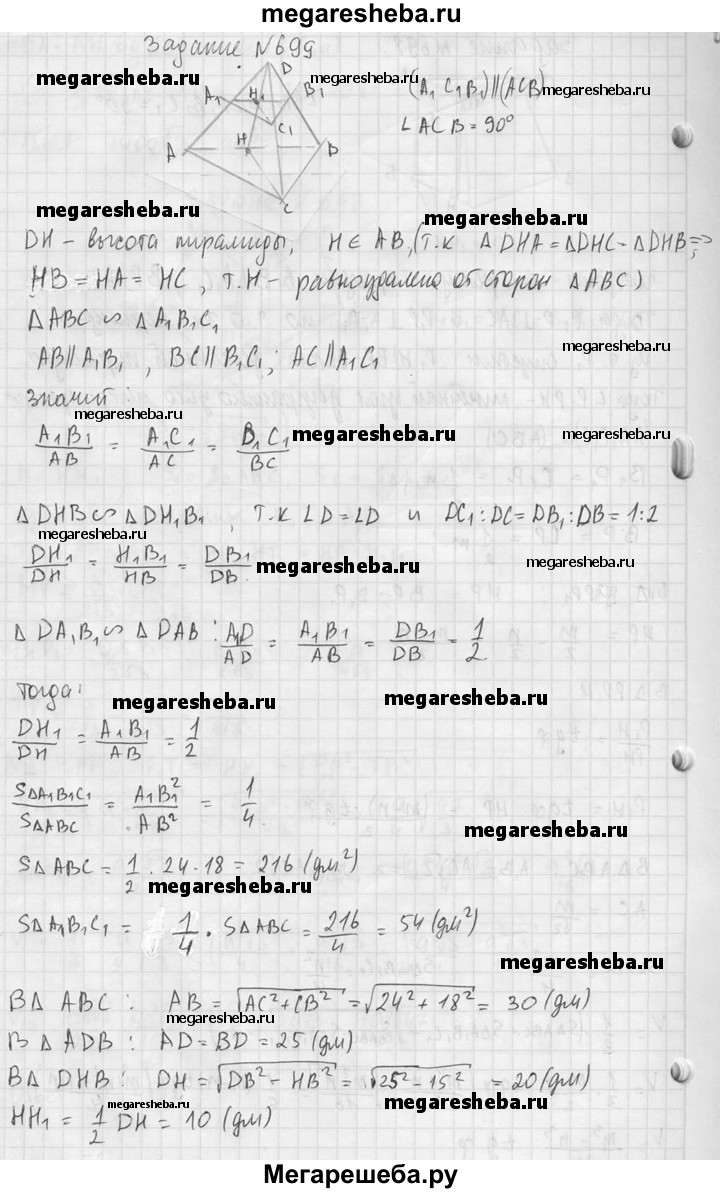 megaresheba.ru
Задание №699
D
A₁ H₁ B₁
C₁
A H B
C
(A₁C₁B₁)||(ACB)
∟ACB = 90°
megaresheba.ru megaresheba.ru megaresheba.ru
megaresheba.ru megaresheba.ru
DH - высота пирамиды, H ∈ AB, (т.к ΔDHA = ΔDHC - ΔDHB ⇒
HB = HA = HC, т.H - равноудалена от сторон ΔABC)
ΔABC ∽ ΔA₁B₁C₁
AB || A₁B₁, BC || B₁C₁; AC || A₁C₁ megaresheba.ru
значит: megaresheba.ru
A₁B₁/AB = A₁C₁/AC = B₁C₁/BC megaresheba.ru megaresheba.ru
ΔDHB ∽ ΔDH₁B₁, т.к ∟D = ∟D и DC₁ : DC = DB₁ : DB = 1:2
megaresheba.ru
DH₁/DH = H₁B₁/HB = DB₁/DB megaresheba.ru megaresheba.ru
ΔDA₁B₁ ∽ ΔDAB : A₁D/AD = A₁B₁/AB = DB₁/DB = 1/2
тогда: megaresheba.ru megaresheba.ru
DH₁/DH = A₁B₁/AB = 1/2
SΔA₁B₁C₁/SΔABC = A₁B₁²/AB² = 1/4
megaresheba.ru
SΔABC = 1/2 · 24 · 18 = 216 (дм²)
megaresheba.ru
SΔA₁B₁C₁ = 1/4 · SΔABC = 216/4 = 54 (дм²)
megaresheba.ru
В Δ ABC : AB = √AC² + CB² = √24² + 18² = 30 (дм)
megaresheba.ru
В Δ ADB : AD = BD = 25 (дм)
В Δ DHB : DH = √DB² - HB² = √25² - 15² = 20 (дм)
megaresheba.ru megaresheba.ru
HH₁ = 1/2 DH = 10 (дм)
Мегарешеба.ру